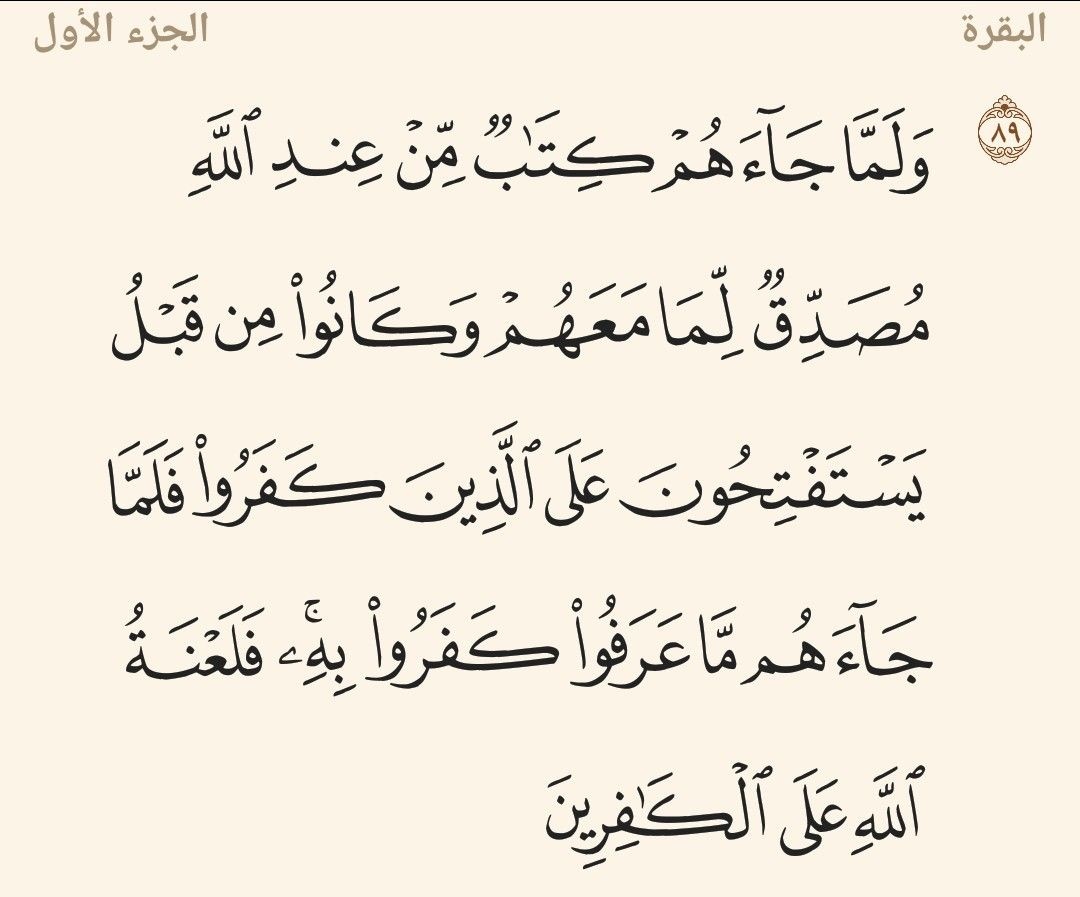 البقرة الجزء الأول
٨٩ وَلَمَّا جَآءَهُمۡ كِتَٰبٞ مِّنۡ عِندِ ٱللَّهِ
مُصَدِّقٞ لِّمَا مَعَهُمۡ وَكَانُواْ مِن قَبۡلُ
يَسۡتَفۡتِحُونَ عَلَى ٱلَّذِينَ كَفَرُواْ فَلَمَّا
جَآءَهُم مَّا عَرَفُواْ كَفَرُواْ بِهِۦۚ فَلَعۡنَةُ
ٱللَّهِ عَلَى ٱلۡكَٰفِرِينَ